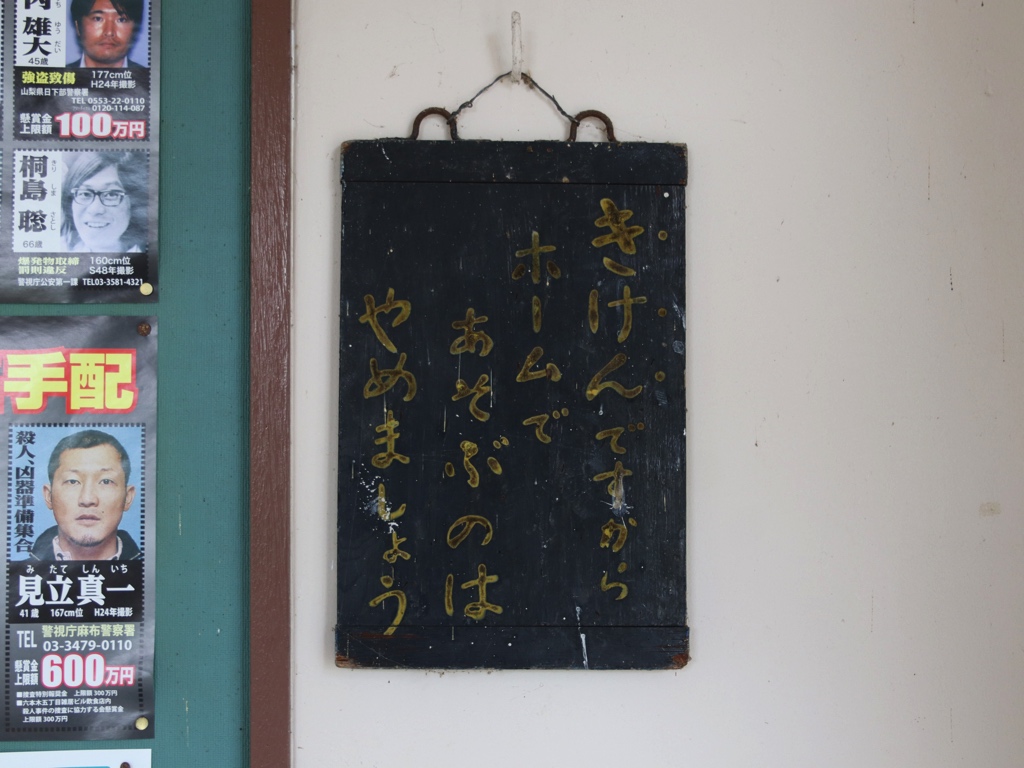 雄大
ち ゆう だい
45歳
強盗致傷
177cm位
H24年撮影
山梨県日下部警察署
TEL 0553-22-0110
0120-114-087
懸賞金
上限額
100万円
桐島 聡
きり しま さとし
66歳
爆発物取締
罰則違反
160cm位
S48年撮影
警視庁公安第一課 TEL03-3581-4321
手配
殺人、凶器準備集合
み たて しん いち
見立真一
41歳 167cm位 H24年撮影
TEL
警視庁麻布警察署
03-3479-0110
懸賞金
上限額
600万円
■捜査特別報奨金 上限額 300万円
■六本木五丁目雑居ビル飲食店内
殺人事件の捜査に協力する会懸賞金
上限額 300万円
きけんですから
ホームで
あそぶのは
やめましょう